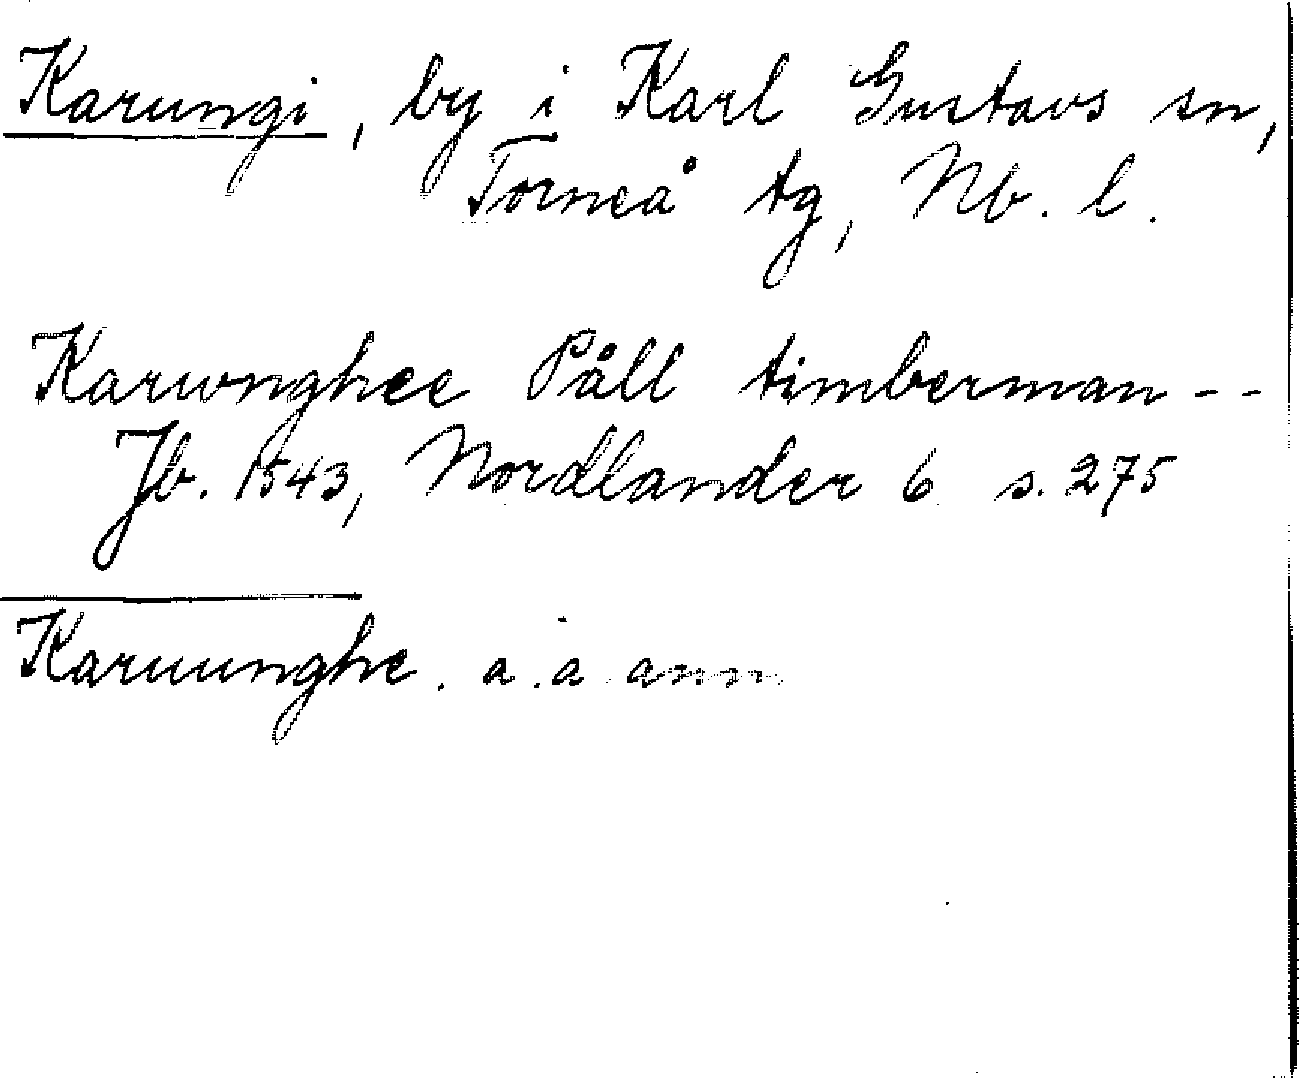 Karungi, by i Karl Gustavs sn,
Torneå tg, Nb. l.
Karwnghee Påll timberman - -
Jb. 1543, Nordlander 6 s. 275
Karuunghe. a. a anm